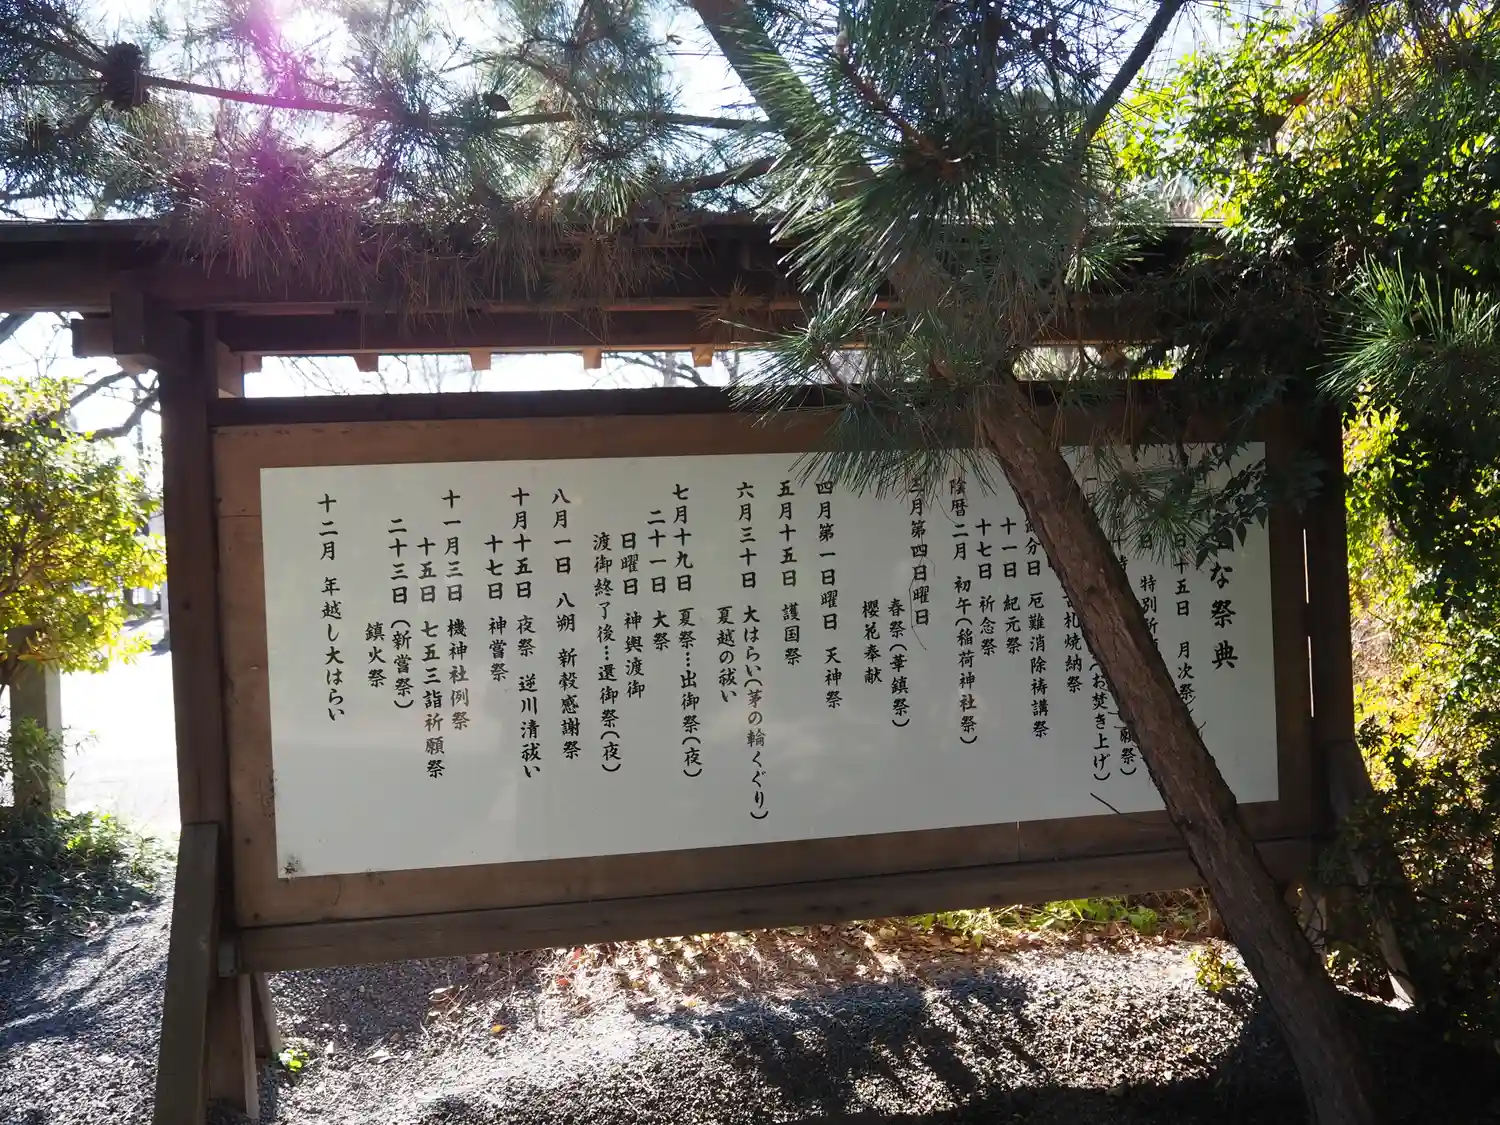 な祭典
十五日 月次祭
特別祈
願祭)
(お焚き上げ)
古札焼納祭
節分日 厄難消除祷講祭
十一日 紀元祭
十七日 祈念祭
陰暦二月 初午(稲荷神社祭)
三月第四日曜日
春祭(華鎮祭)
櫻花奉献
四月第一日曜日 天神祭
五月十五日 護国祭
六月三十日 大はらい(茅の輪くぐり)
夏越の祓い
七月十九日 夏祭…出御祭(夜)
二十一日 大祭
日曜日 神輿渡御
渡御終了後…還御祭(夜)
八月一日 八朔 新穀感謝祭
十月十五日 夜祭 逆川清祓い
十七日 神嘗祭
十一月三日 機神社例祭
十五日 七五三詣祈願祭
二十三日(新嘗祭)
鎮火祭
十二月 年越し大はらい